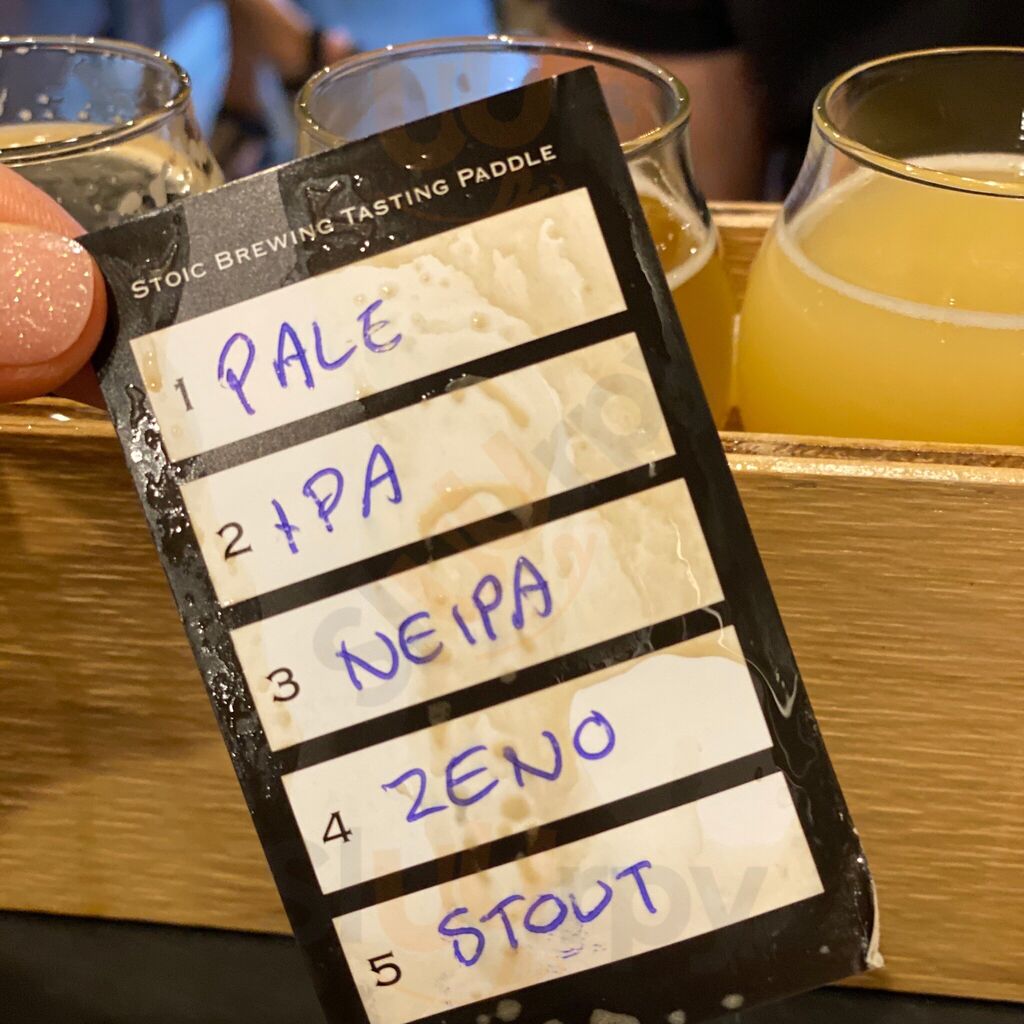 STOIC BREWING TASTING PADDLE
1 PALE
2 IPA
3 NEIPA
4 ZENO
5 STOUT
sluurpy
sluurpy